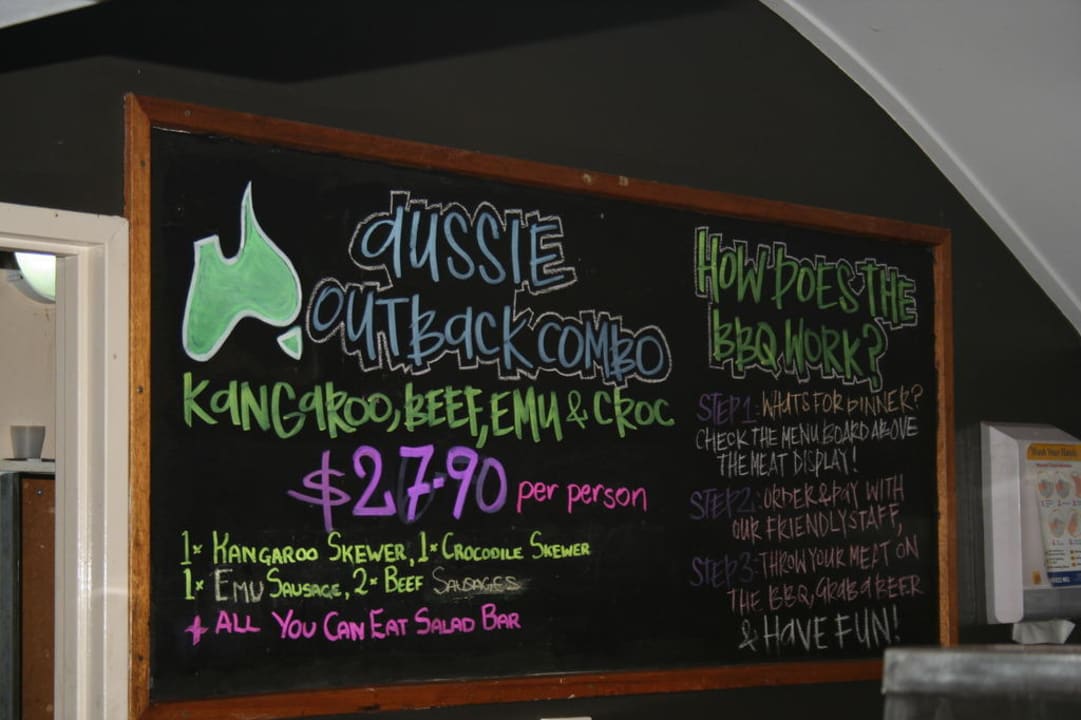 aussie
outback combo
Kangaroo, Beef, Emu & Croc
$27.90 per person
1x Kangaroo Skewer, 1x Crocodile Skewer
1x Emu Sausage, 2x Beef Sausages
+ All You Can Eat Salad Bar
How Does The
BBQ Work?
Step 1: Whats for dinner?
Check the menu board above
the meat display!
Step 2: Order & pay with
our friendly staff,
Step 3: Throw your meat on
the BBQ, grab a beer
& have fun!
Wash Your Hands